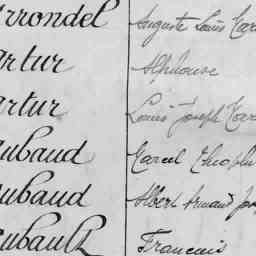 rrondel Auguste Louis Mar
artur Alphonse
artur Louis Joseph Mar
aubaud Marcel Théoph
aubaud Albert Armand Jos
aubault Francois